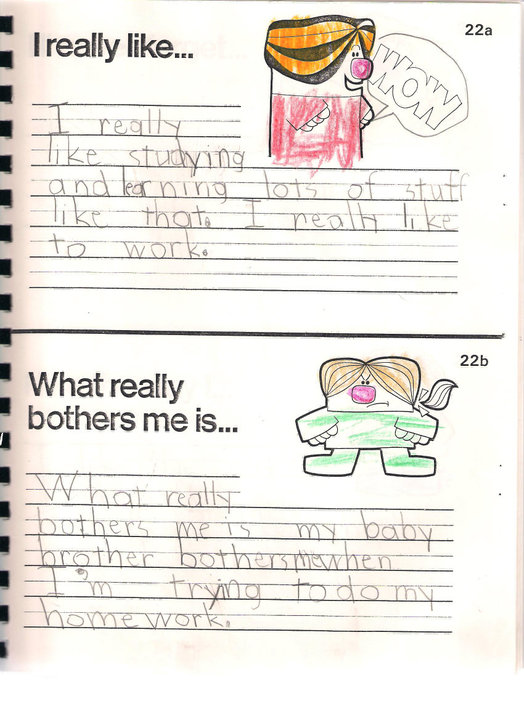 22a
I really like...
WOW
I really
like studying
and learning lots of stuff
like that. I really like
to work.
22b
What really
bothers me is...
What really
bothers me is my baby
brother bothers me when
I'm trying to do my
homework.